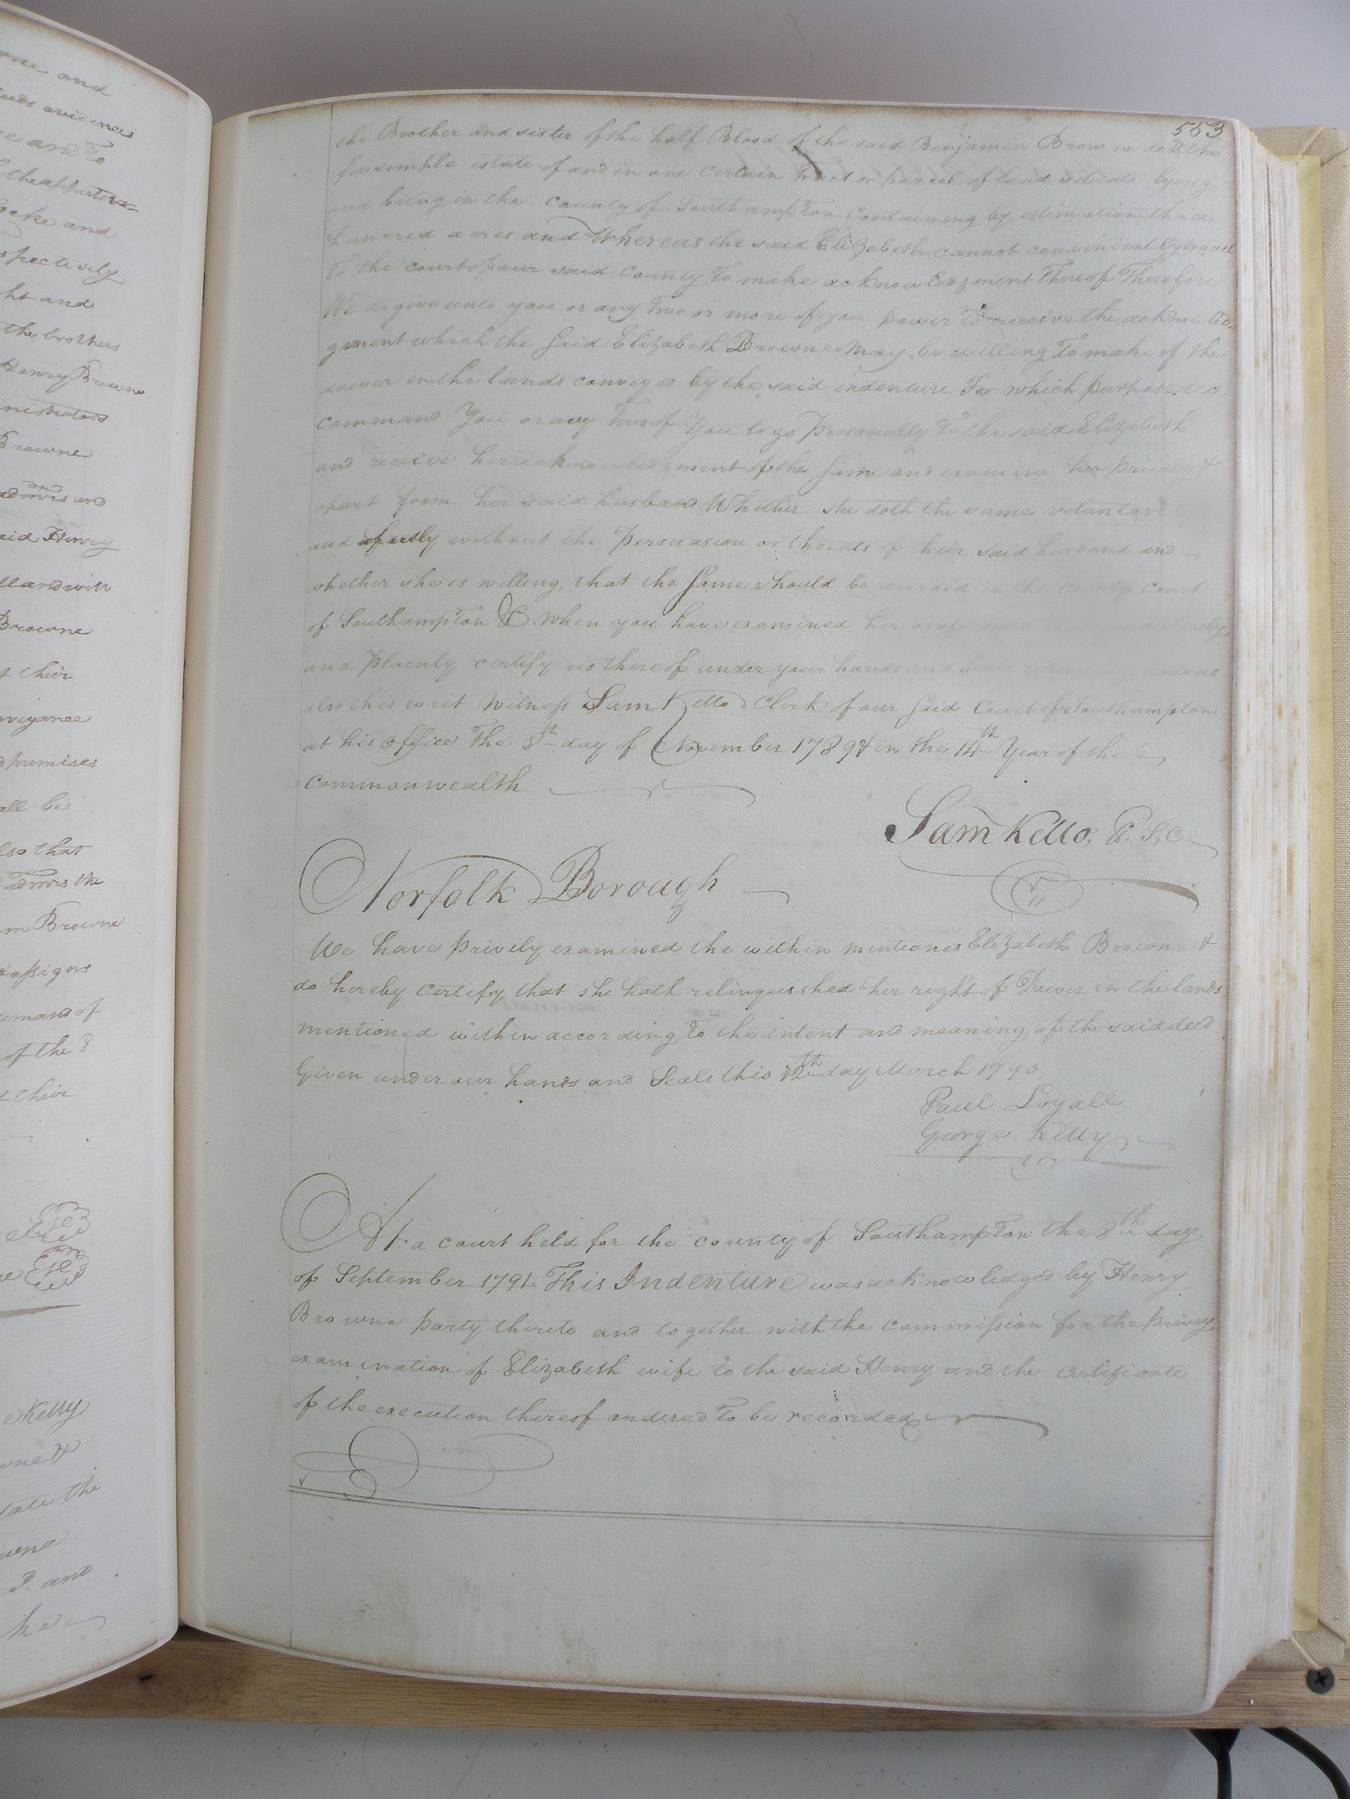 553
the Brother and sister of the half Blood of the said Benjamin Browne dec'd the
fee simple estate of and in one certain tract or parcel of land situate lying
and being in the County of Southampton containing by estimation three
hundred acres and Whereas the said Elizabeth cannot conveniently travel
To the court of our said County To make acknowledgment thereof Therefore
We do give unto you or any Two or more of you power To receive the acknowled-
gment which the said Elizabeth Browne may be willing To make of the
dower in the lands conveyed by the said indenture For which purpose we
command You or any Two of You to go personally To the said Elizabeth
and receive her acknowledgment of the same and examine her privily &
apart from her said husband Whether she doth the same voluntarily
and freely without the Persuasion or threats of her said husband and
whether she is willing that the same should be recorded in the County Court
of Southampton & When you have examined her as aforesaid
and Plainly certify us thereof under your hands and seals
also this writ Witness Sam Kello Clerk of our said Court of Southampton
at his office The 5th day of November 1789 & in the 14th Year of the
Commonwealth
Sam Kello, C, S, C
Norfolk Borough
We have privily examined the within mentioned Elizabeth Browne &
do hereby certify that she hath relinquished her right of Dower in the lands
mentioned within according to the intent and meaning of the said deed
Given under our hands and Seals this 12th day March 1790
Paul Loyall
George Kelly
At a court held for the county of Southampton the 8th day
of September 1791. This Indenture was acknowledged by Henry
Browne party thereto and together with the commission for the privy
examination of Elizabeth wife to the said Henry and the certificate
of the execution thereof ordered To be recorded